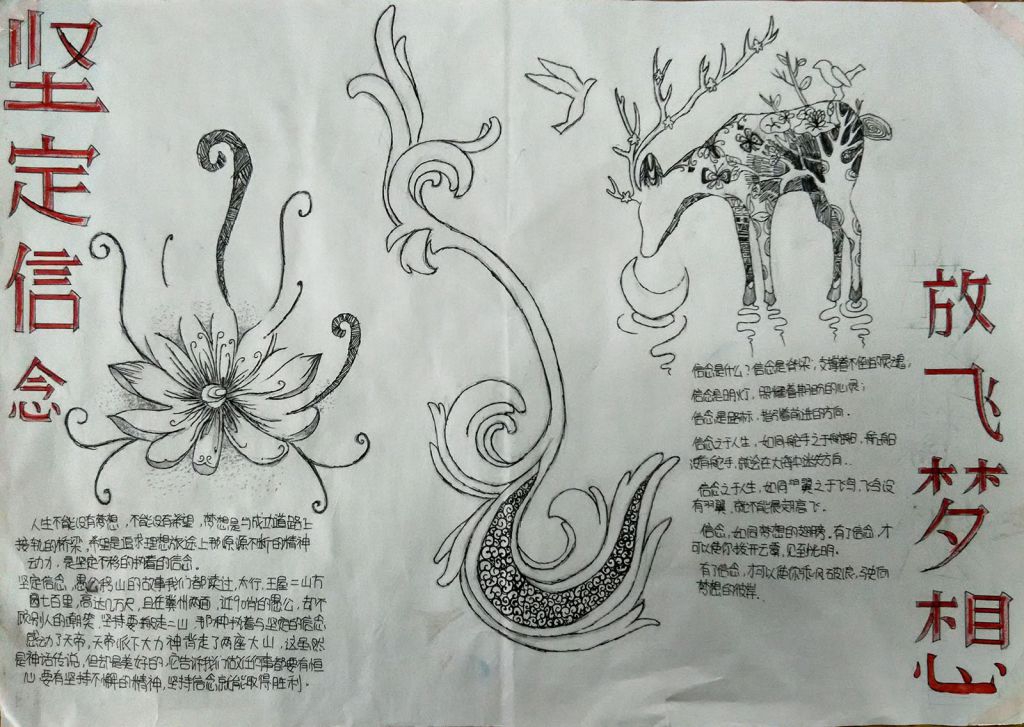 坚定信念
人生不能没有梦想，不能没有希望，梦想是与成功道路上
接轨的桥梁，希望是追求理想旅途上那源源不断的精神
动力，是坚定不移的执着的信念。
坚定信念，愚公移山的故事我们都读过，太行，王屋二山方
圆七百里，高达几万尺，且在冀州南面，近90岁的愚公，却不
顾别人的嘲笑，坚持要搬走二山，那种执着与坚定的信念
感动了天帝，天帝派下大力神背走了两座大山，这虽然
是神话传说，但却是美好的，它告诉我们做任何事都要有恒
心，要有坚持不懈的精神，坚持信念就能取得胜利。
信念是什么？信念是脊梁，支撑着不倒的灵魂；
信念是明灯，照耀着期盼的心灵；
信念是路标，指引着前进的方向。
信念之于人生，如同舵手之于船舶，船舶
没有舵手，就会在大海中迷失方向..
信念之于人生，如同羽翼之于飞鸟，飞鸟没
有羽翼，就不能展翅高飞.
信念，如同梦想的翅膀，有了信念，才
可以使你拨开云雾，见到光明.
有了信念，才可以使你乘风破浪，驶向
梦想的彼岸.
放飞梦想